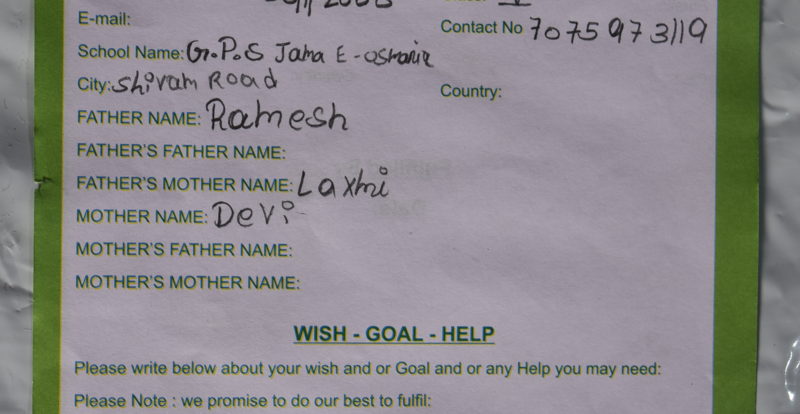 E-mail:
Contact No 7075973119
School Name: G.P.S Jama E-osmania
City: Shivam Road
Country:
FATHER NAME: Ramesh
FATHER'S FATHER NAME:
FATHER'S MOTHER NAME: Laxmi
MOTHER NAME: Devi
MOTHER'S FATHER NAME:
MOTHER'S MOTHER NAME:
WISH - GOAL - HELP
Please write below about your wish and or Goal and or any Help you may need:
Please Note : we promise to do our best to fulfil: